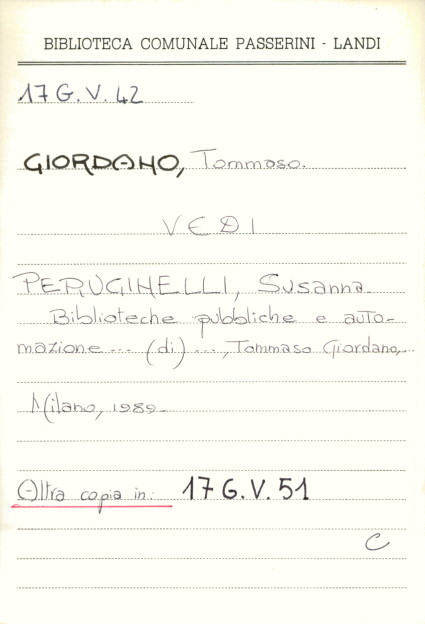 BIBLIOTECA COMUNALE PASSERINI - LANDI
17 G. V. 42
GIORDANO, Tommaso.
VEDI
PERUGINELLI, Susanna
Biblioteche pubbliche e auto-
mazione ... (di) ..., Tommaso Giordano, ...
Milano, 1989 -
Altra copia in: 17 G. V. 51
C